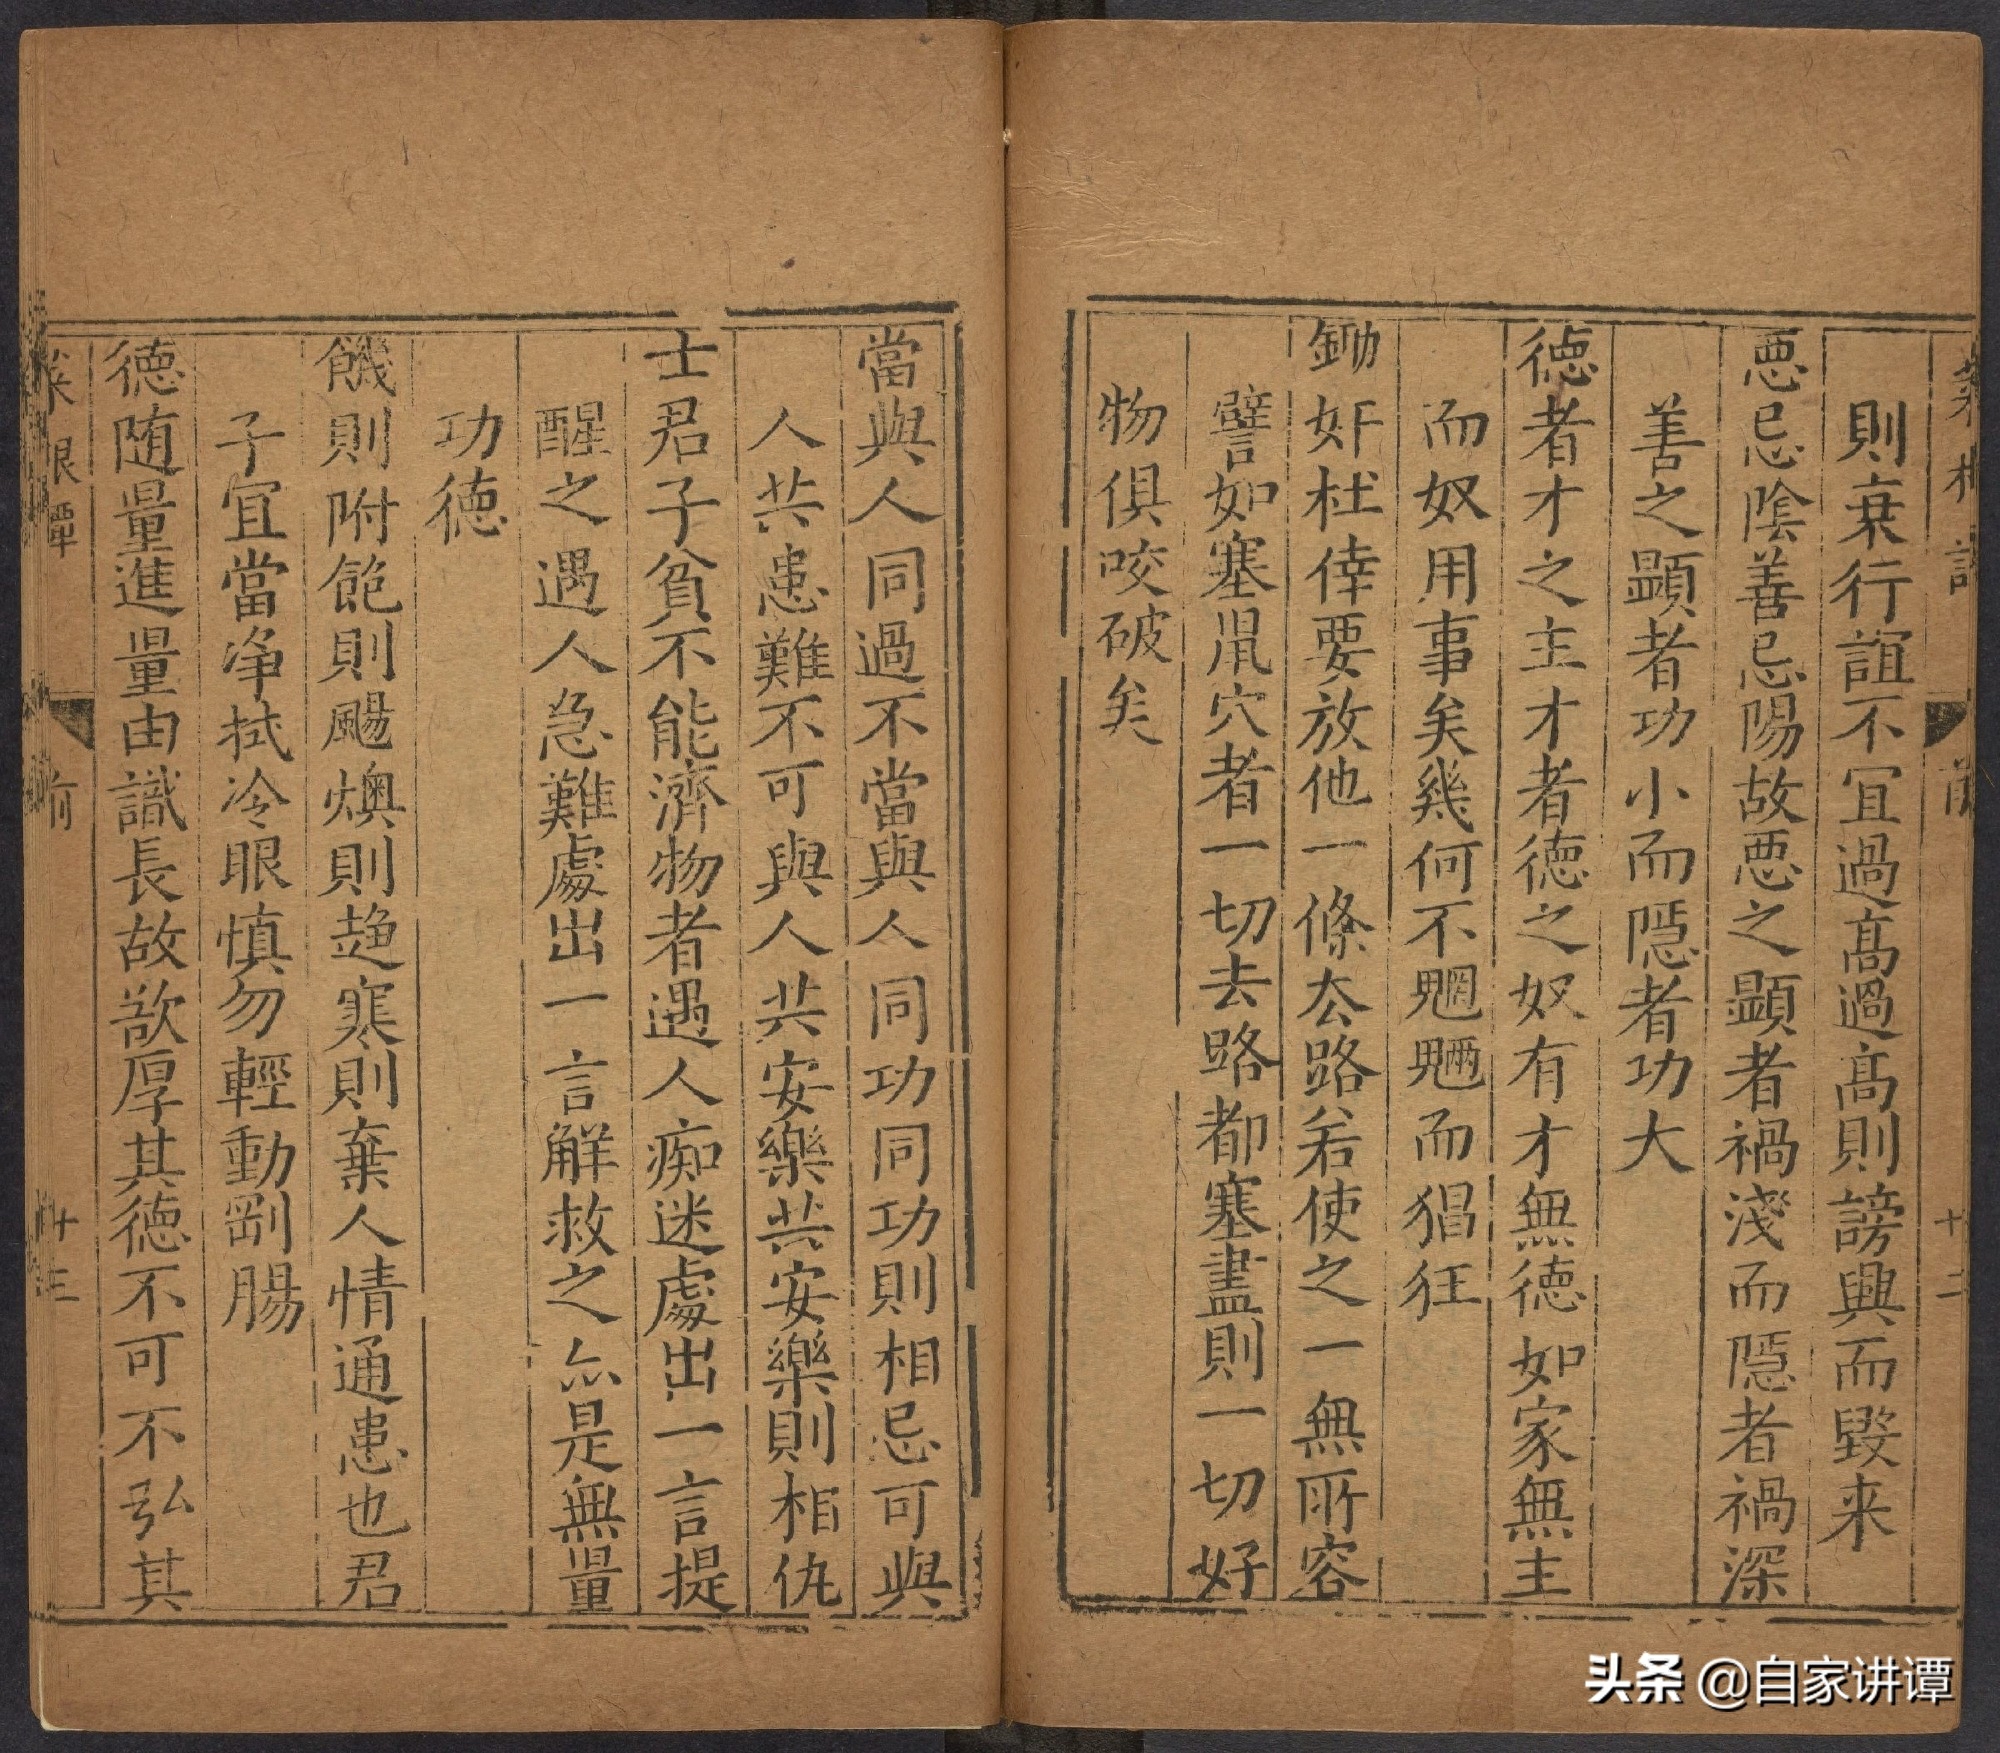 則棄行誼不宜過高過高則謗興而毀来
悪忌陰善忌陽故悪之顕者禍淺而隠者禍深
善之顕者功小而隠者功大
徳者才之主才者徳之奴有才無徳如家無主
而奴用事矣幾何不魍魎而猖狂
鋤奸杜倖要放他一條去路若使之一無所容
譬如塞鼠穴者一切去路都塞盡則一切好
物俱咬破矣
當與人同過不當與人同功同功則相忌可與
人共患難不可與人共安樂共安樂則相仇
士君子貧不能濟物者遇人痴迷處出一言提
醒之遇人急難處出一言解救之亦是無量
功徳
饑則附飽則颺燠則趨寒則棄人情通患也君
子宜當净拭冷眼慎勿輕動剛腸
徳随量進量由識長故欲厚其徳不可不弘其
菜根譚
前
十三
前
十二
头条 @自家讲谭